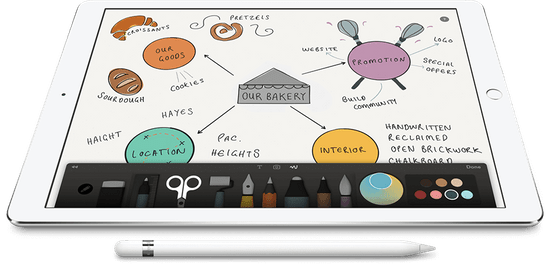 CROISSANTS
PRETZELS
OUR
GOODS
Cookies
SOURDOUGH
WEBSITE
PROMOTION
LOGO
SPECIAL
OFFERS
BUILD
COMMUNITY
OUR BAKERY
HAYES
HAIGHT
PAC.
HEIGHTS
LOCATION
INTERIOR
HANDWRITTEN
RECLAIMED
OPEN BRICKWORK
CHALKBOARD
T
Done